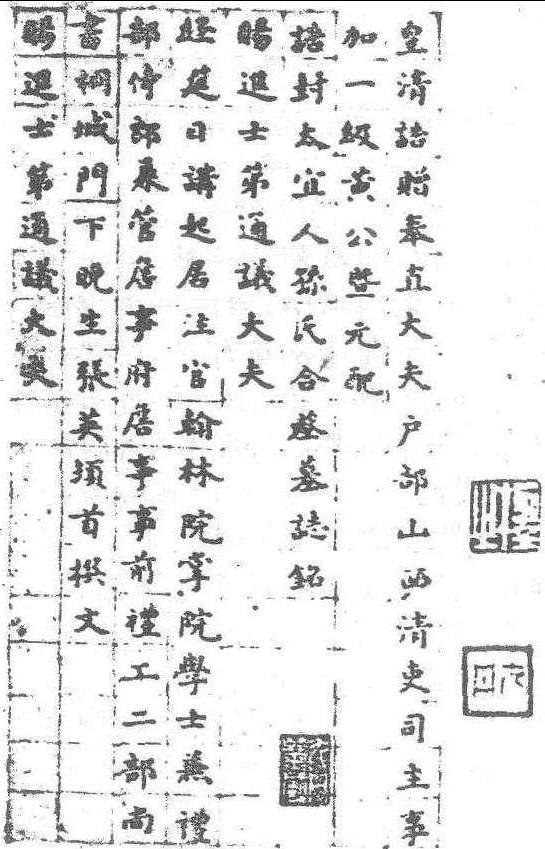 皇清誥贈奉直大夫戶部山西清吏司主事
加一級黃公暨元配
誥封太宜人孫氏合葬墓誌銘
賜進士第通議大夫
經筵日講起居注官翰林院掌院學士兼禮
部侍郎兼管詹事府詹事事前禮工二部尚
書桐城門下晚生張英頓首撰文
賜進士第通議大夫